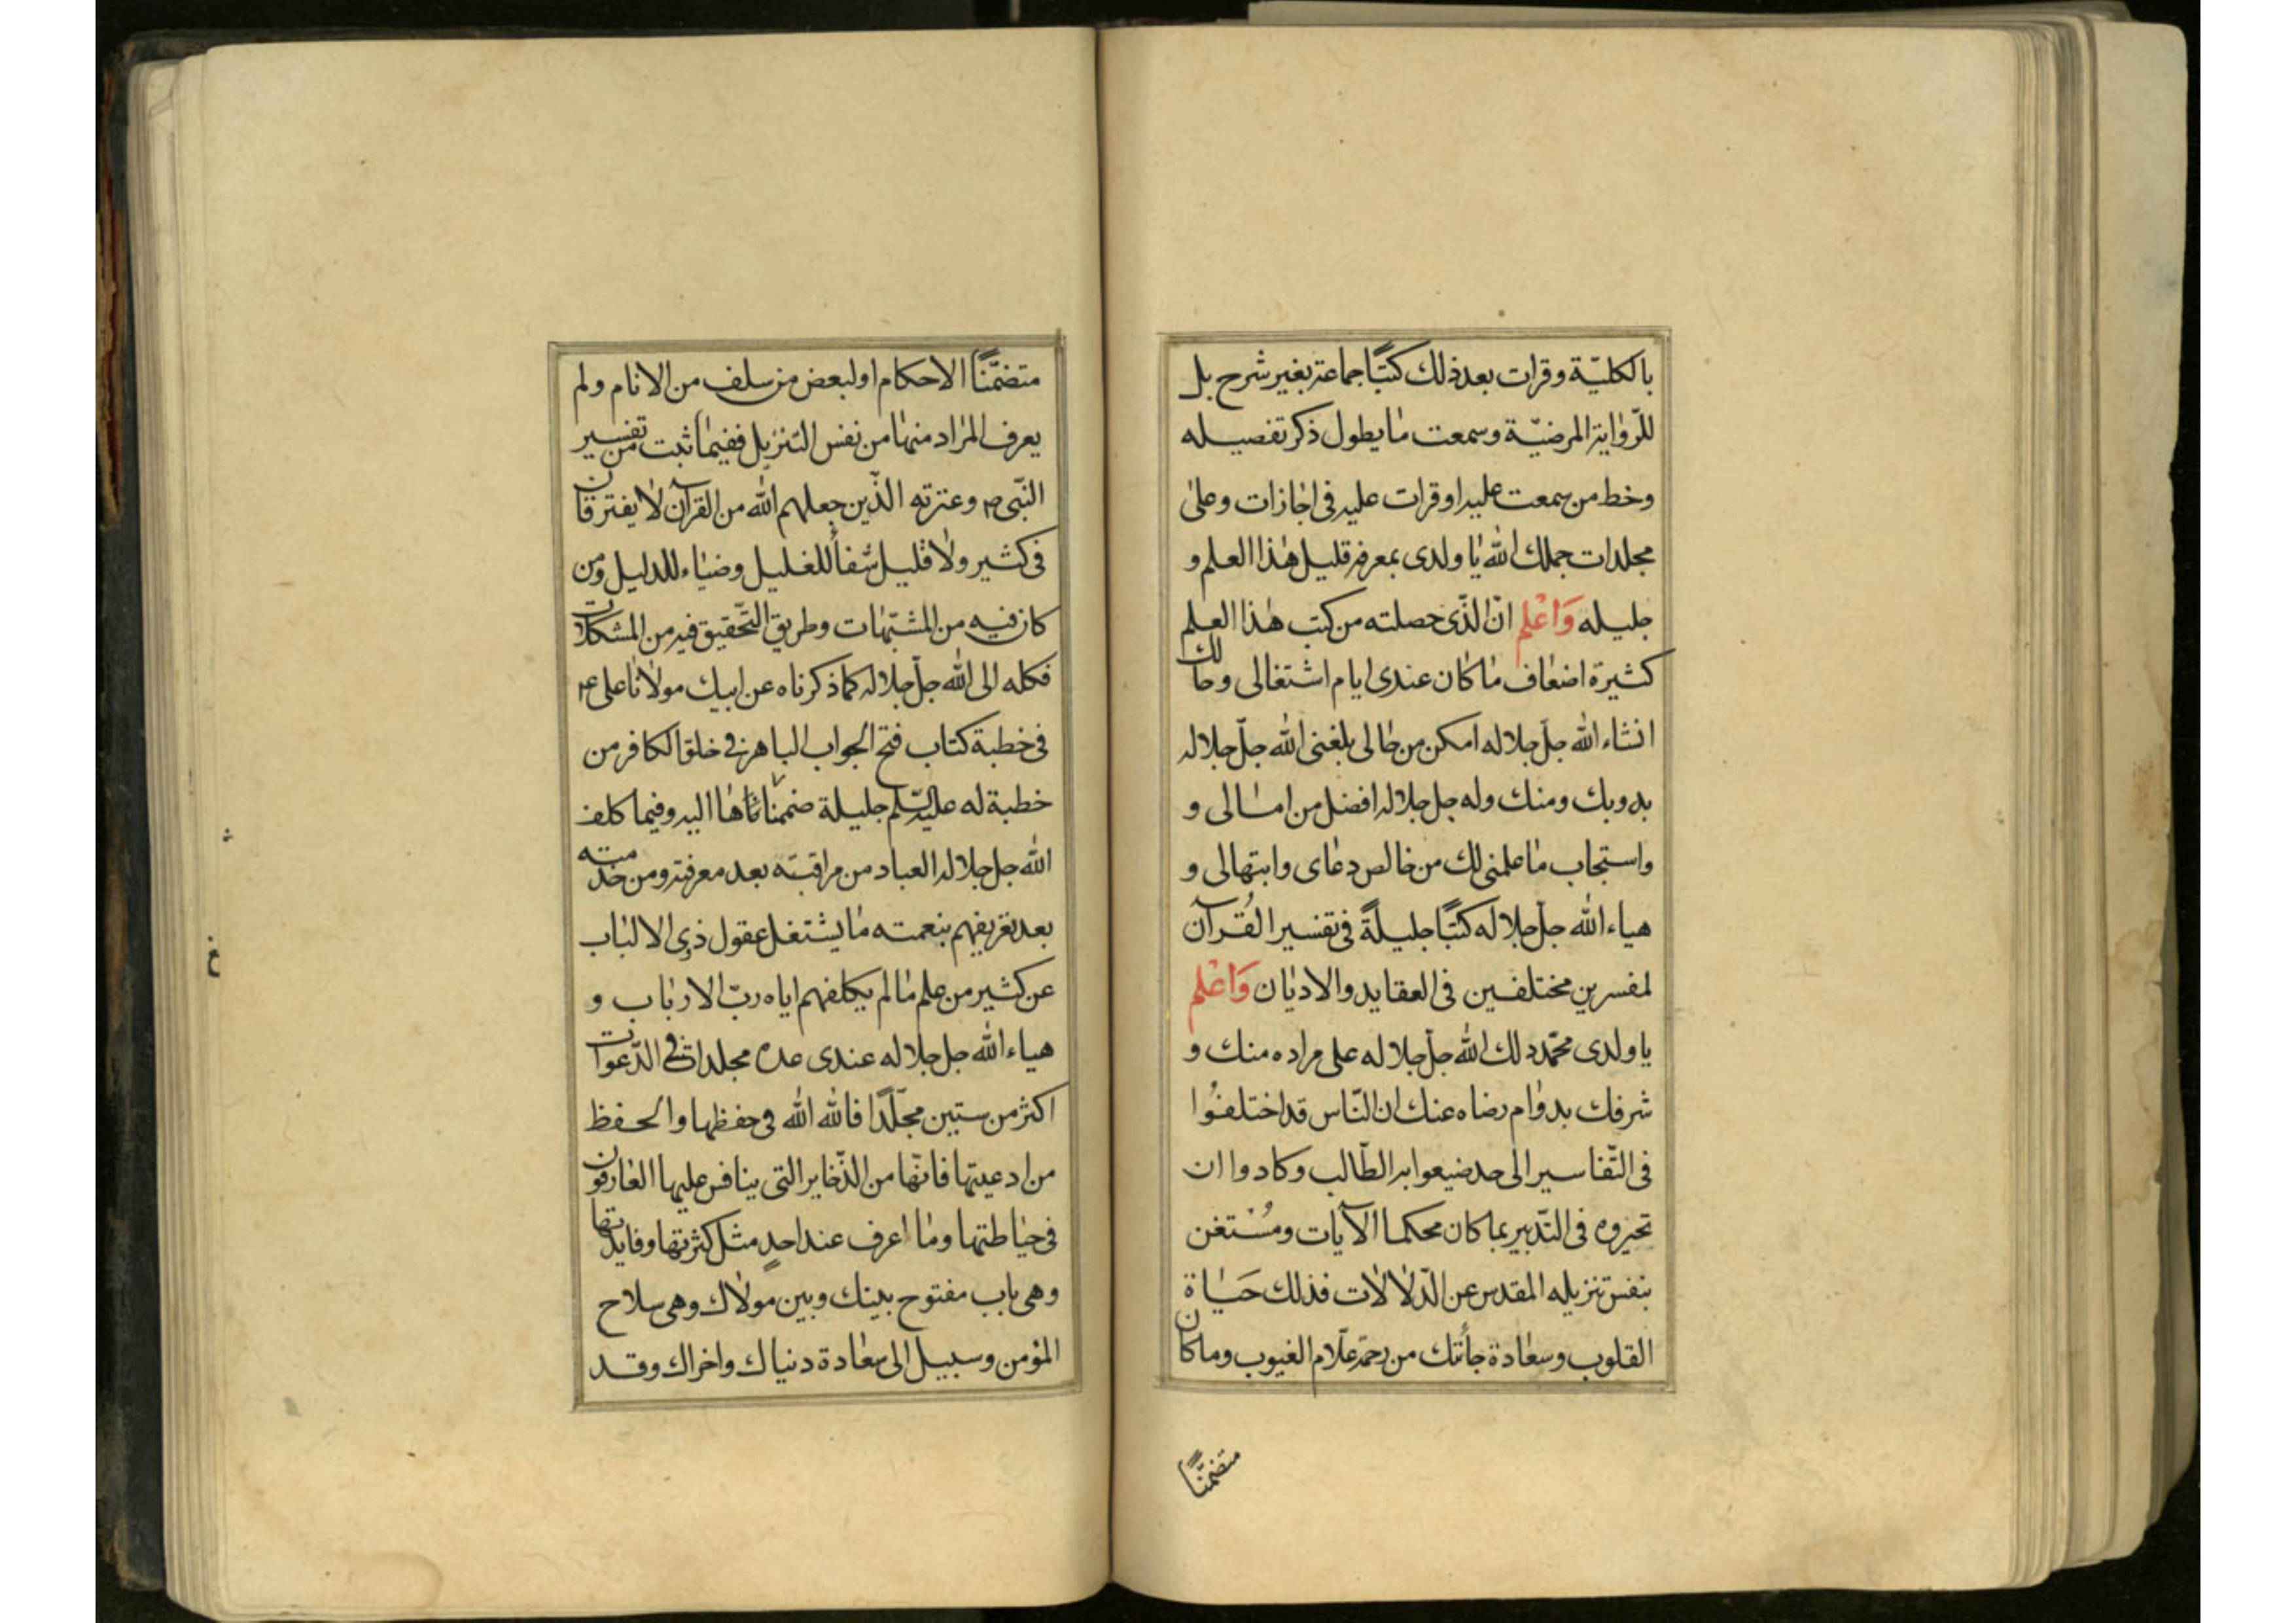 بالكليّة وقرات بعد ذلك كتبًا جماعة بغير شرح بل
للرّواية المرضيّة وسمعت ما يطول ذكر تفصيله
وخط من سمعت عليه او قرات عليه فى اجازات وعلى
مجلدات جملك الله يا ولدى بمعرفة قليل هذا العلم و
جليله وَاعْلم انّ الذّى حصلته من كتب هذا العلم
كثيرة اضعاف ما كان عندى ايام اشتغالى وحالك
انشاء الله جلّ جلاله امكن من حالى بلغنى الله جلّ جلاله
به وبك ومنك وله جل جلاله افضل من امالى و
واستجاب ما علمنى لك من خالص دعاى وابتهالى و
هياء الله جلّ جلاله كتبًا جليلةً فى تفسير القُرآن
لمفسرين مختلفين فى العقايد والاديان وَاعْلم
يا ولدى محمّد دلك الله جلّ جلاله على مراده منك و
شرفك بدوام رضاه عنك ان النّاس قد اختلفُوا
فى التّفاسير الى حد ضيعوا به الطّالب وكادوا ان
تحيروه فى التّدبير بما كان محكما الآيات ومُسْتغن
بنفس تنزيله المقدس عن الدّلالات فذلك حَيَاة
القلوب وسعادة جأتك من رحمة علّام الغيوب وما كان
متضمّنًا
متضمّنًا الاحكام او لبعض من سلف من الانام ولم
يعرف المراد منها من نفس التّنزيل ففيما ثبت من تفسير
النّبى ص وعترته الذّين جعلهم الله من القرآن لا يفترقان
فى كثير ولا قليل شفأ للغليل وضياء للدليل ومن
كان فيه من المشتبهات وطريق التّحقيق فيه من المشكلات
فكله الى الله جلّ جلاله كما ذكرناه عن ابيك مولانا على ع
فى خطبة كتاب فتح الجواب الباهر فى خلق الكافر من
خطبة له عليه السّلم جليلة ضمنّاها اليه وفيما كلف
الله جل جلاله العباد من مراقبته بعد معرفته ومن خدمته
بعد تعريفهم بنعمته ما يشتغل عقول ذوى الالباب
عن كثير من علم ما لم يكلفهم اياه ربّ الارباب و
هياء الله جل جلاله عندى عدة مجلدات فى الدّعوات
اكثر من ستين مجلّدًا فالله الله فى حفظها والحفظ
من ادعيتها فانّها من الذّخاير التى ينافس عليها العارفون
فى حياطتها وما اعرف عند احدٍ مثل كثرتها وفايدتها
وهى باب مفتوح بينك وبين مولاك وهى سلاح
المؤمن وسبيل الى سعادة دنياك واخراك وقد